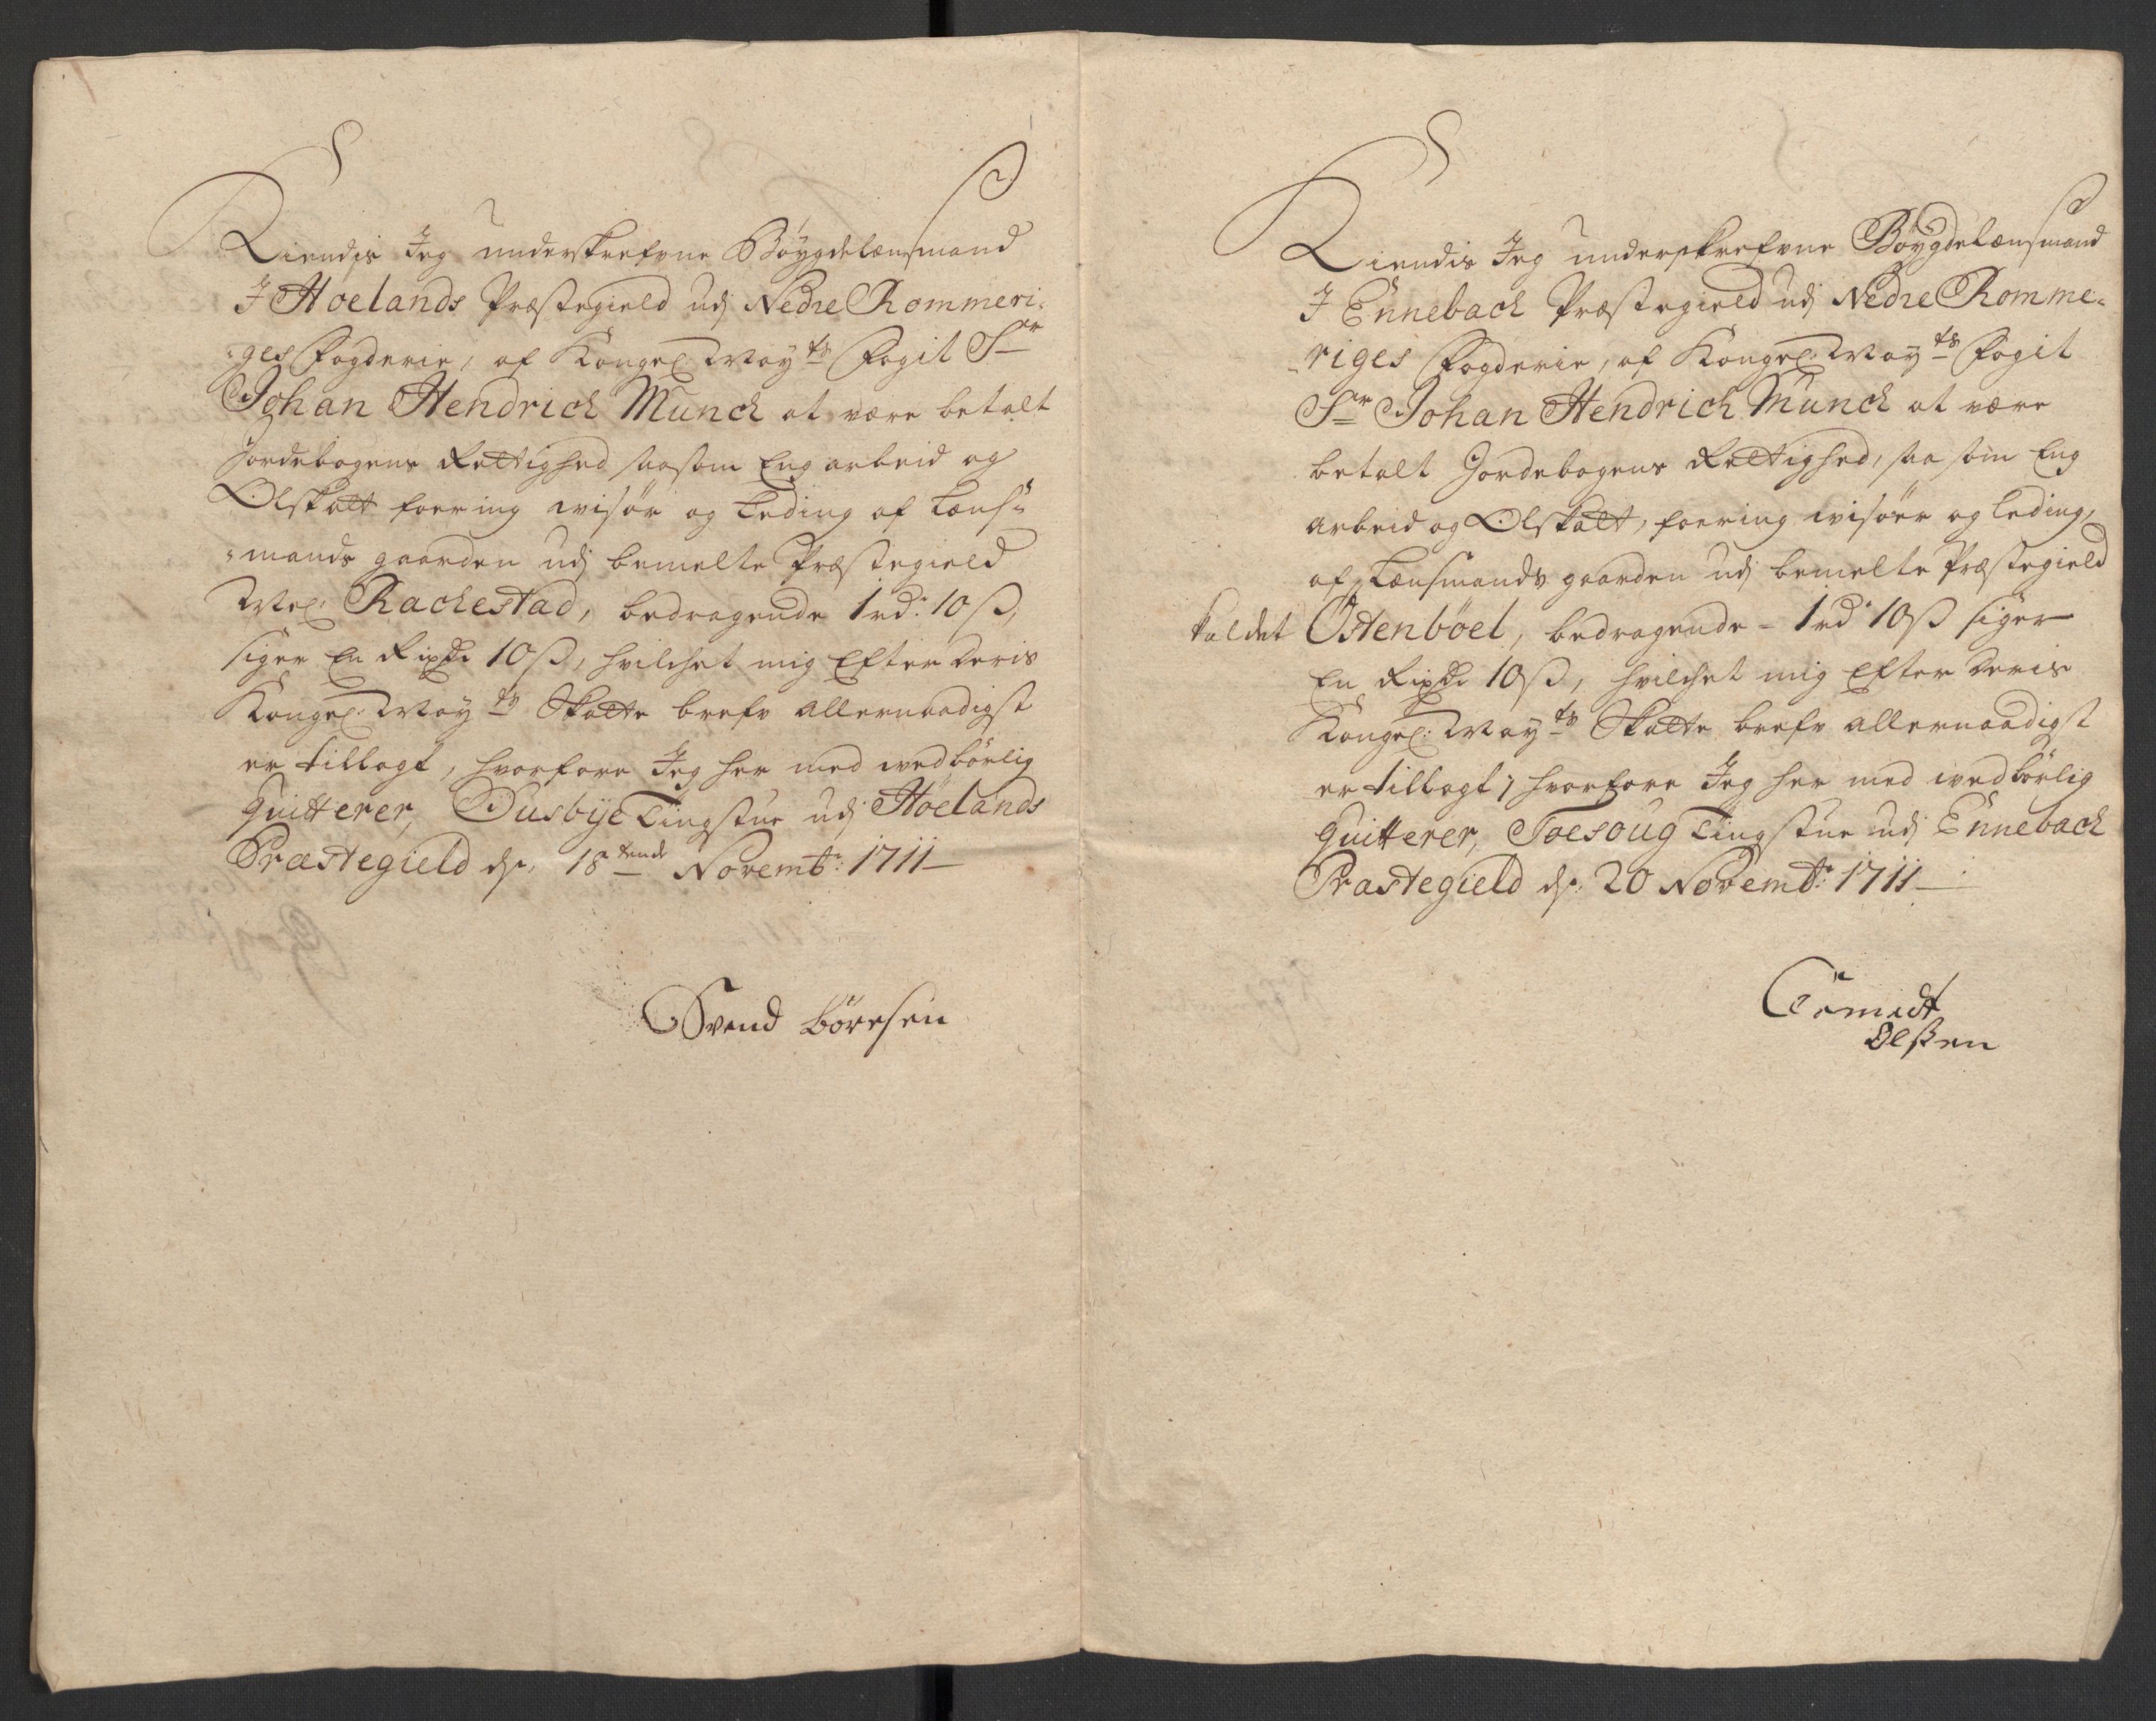 Kiendis Jeg underskrefvne Bøygdelænsmand
J Høelands Præstegield udj Nedre Rommeri-
-ges Fogderie, af Kongel: May.ts Fogit Sr
Johan Hendrich Munch at være betalt
Jordebogens Rettighed saasom Eng arbeid og
Olskatt foering wisør og Leding af Lens-
-mands gaarden udj bemelte Præstegield
Nel: Rachestad, bedragende 1 rd: 10 ß,
siger En Rixdr 10 ß, hvilchet mig Efter Deris
Kongel: May.ts Skatte brefv allernaadigst
er tillagt, hvorfore Jeg her med wedbørlig
Quitterer, Dusbye Tingstue udj Høelands
Præstegield ds. 18tende Novembr: 1711
Svend Børesen
Kiendis Jeg underskrefvne Bøygdelænsmand
J Ennebach Præstegield udj Nedre Romme-
-riges Fogderie, af Kongel: May.ts Fogit
Sr Johan Hendrich Munch at være
betalt Jordebogens Rettighed, saa som Eng
arbeid og Olskatt, foering wisøer og Leding,
af Lænsmands gaarden udj bemelte Præstegield
kaldet Østenbøel, bedragende - 1 rd 10 ß siger
En Rixdr 10 ß, hvilchet mig Efter Deris
Kongel: May.ts Skatte brefv allernaadigst
er tillagt, hvorfore Jeg her med wedbørlig
Quitterer, Toesoug Tingstue udj Ennebach
Præstegield ds: 20 Novembr: 1711
Olsøen